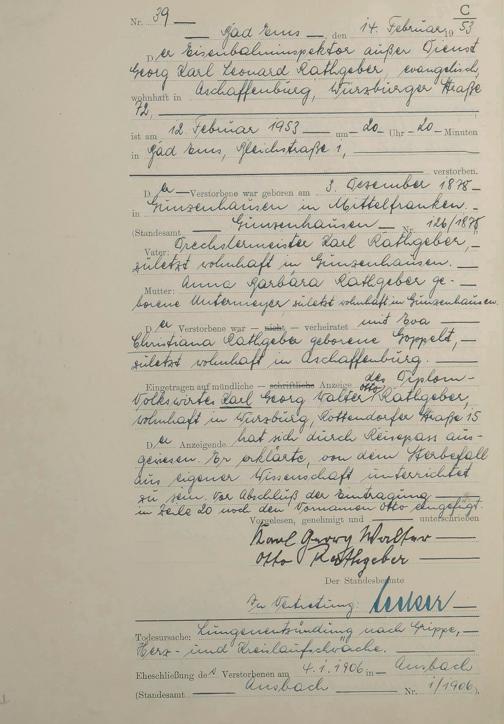 C
Nr. 39
Bad Ems, den 14. Februar 1953
Der Eisenbahninspektor außer Dienst
Georg Karl Leonard Rathgeber, evangelisch,
wohnhaft in Aschaffenburg, Würzburger Straße
72,
ist am 12. Februar 1953 um 20 Uhr 20 Minuten
in Bad Ems, Bleichstraße 1,
verstorben.
Der Verstorbene war geboren am 3. Dezember 1878
in Gunzenhausen in Mittelfranken.
(Standesamt Gunzenhausen Nr. 126/1878
Vater: Drechslermeister Karl Rathgeber,
zuletzt wohnhaft in Gunzenhausen.
Mutter: Anna Barbara Rathgeber ge-
borene Untermeyer, zuletzt wohnhaft in Gunzenhausen.
Der Verstorbene war – nicht – verheiratet mit Eva
Christiana Rathgeber geborene Goppelt,
zuletzt wohnhaft in Aschaffenburg.
Eingetragen auf mündliche – schriftliche Anzeige des Diplom-
Volkswirtes Karl Georg Walter Otto Rathgeber,
wohnhaft in Würzburg, Rottendorfer Straße 15
Der Anzeigende hat sich durch Reisepass aus-
gewiesen. Er erklärte, von dem Sterbefall
aus eigener Wissenschaft unterrichtet
zu sein. Vor Abschluß der Eintragung
in Zeile 20 noch den Vornamen Otto eingefügt.
Vorgelesen, genehmigt und unterschrieben
Karl Georg Walter
Otto Rathgeber
Der Standesbeamte
In Vertretung:
Todesursache: Lungenentzündung nach Grippe,
Herz- und Kreislaufschwäche.
Eheschließung des Verstorbenen am 4.1.1906 in Ansbach
(Standesamt Ansbach Nr. 1/1906).